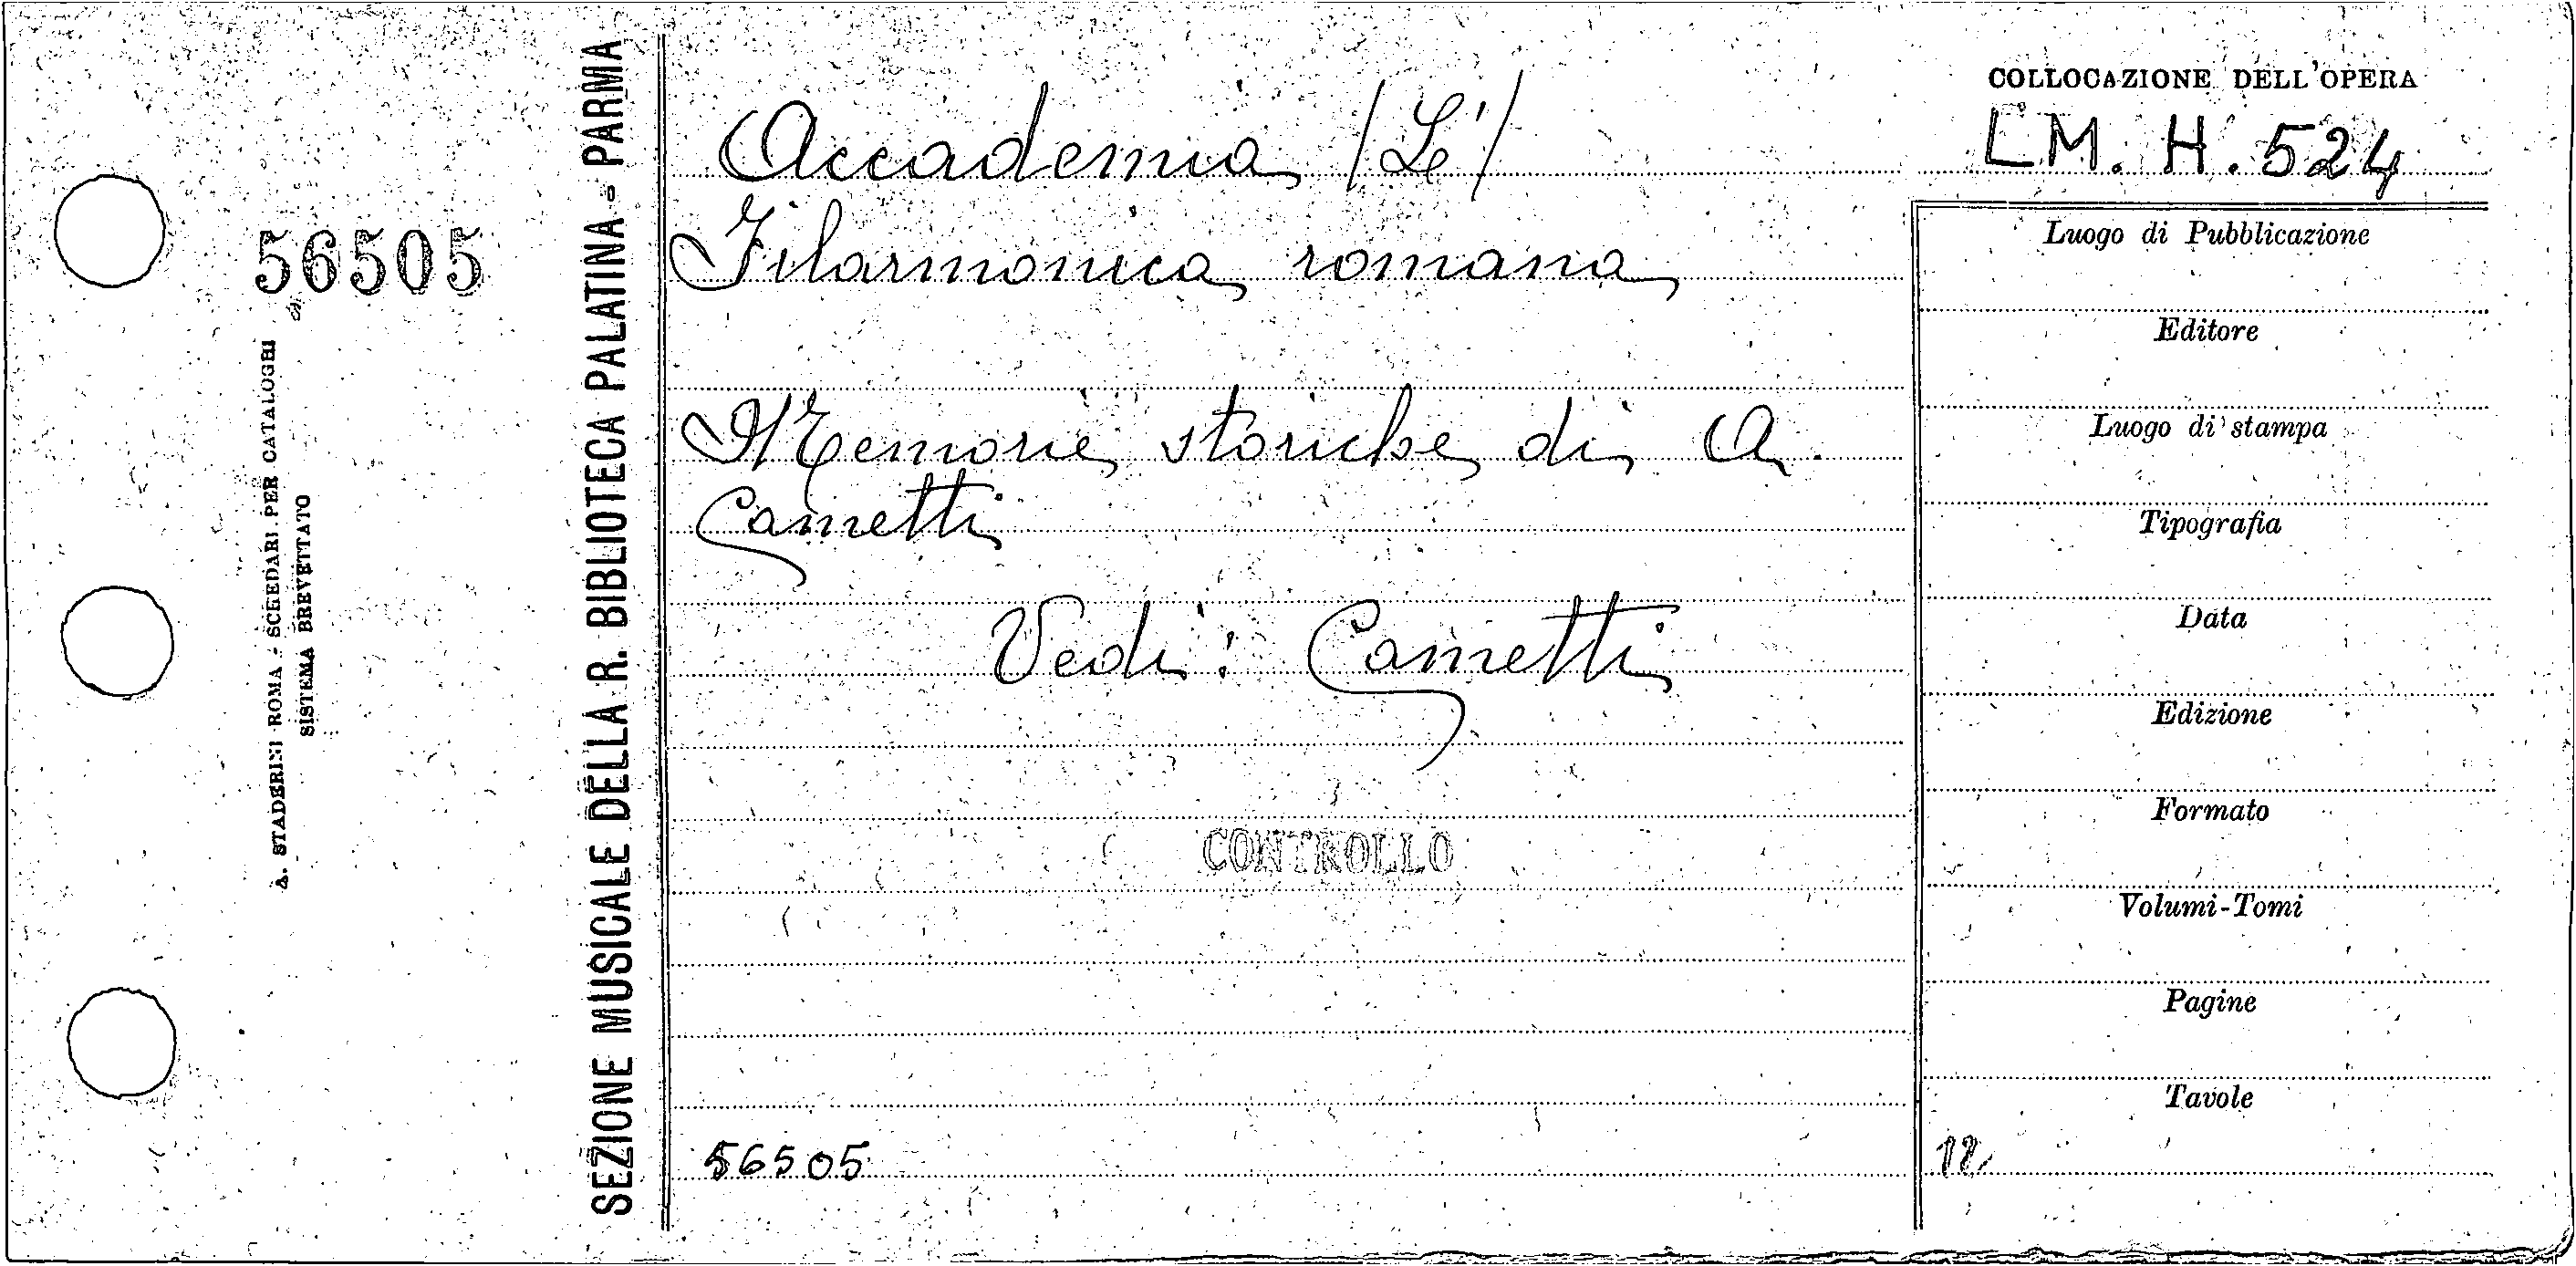 56505
A. STADERINI - ROMA - SCHEDARI PER CATALOGHI
SISTEMA BREVETTATO
SEZIONE MUSICALE DELLA R. BIBLIOTECA PALATINA - PARMA
Accademia /L'/
Filarmonica romana
Memorie storiche di A.
Cametti
Vedi: Cametti
CONTROLLO
56505
COLLOCAZIONE DELL'OPERA
L.M. H. 524
Luogo di Pubblicazione
Editore
Luogo di stampa
Tipografia
Data
Edizione
Formato
Volumi-Tomi
Pagine
Tavole